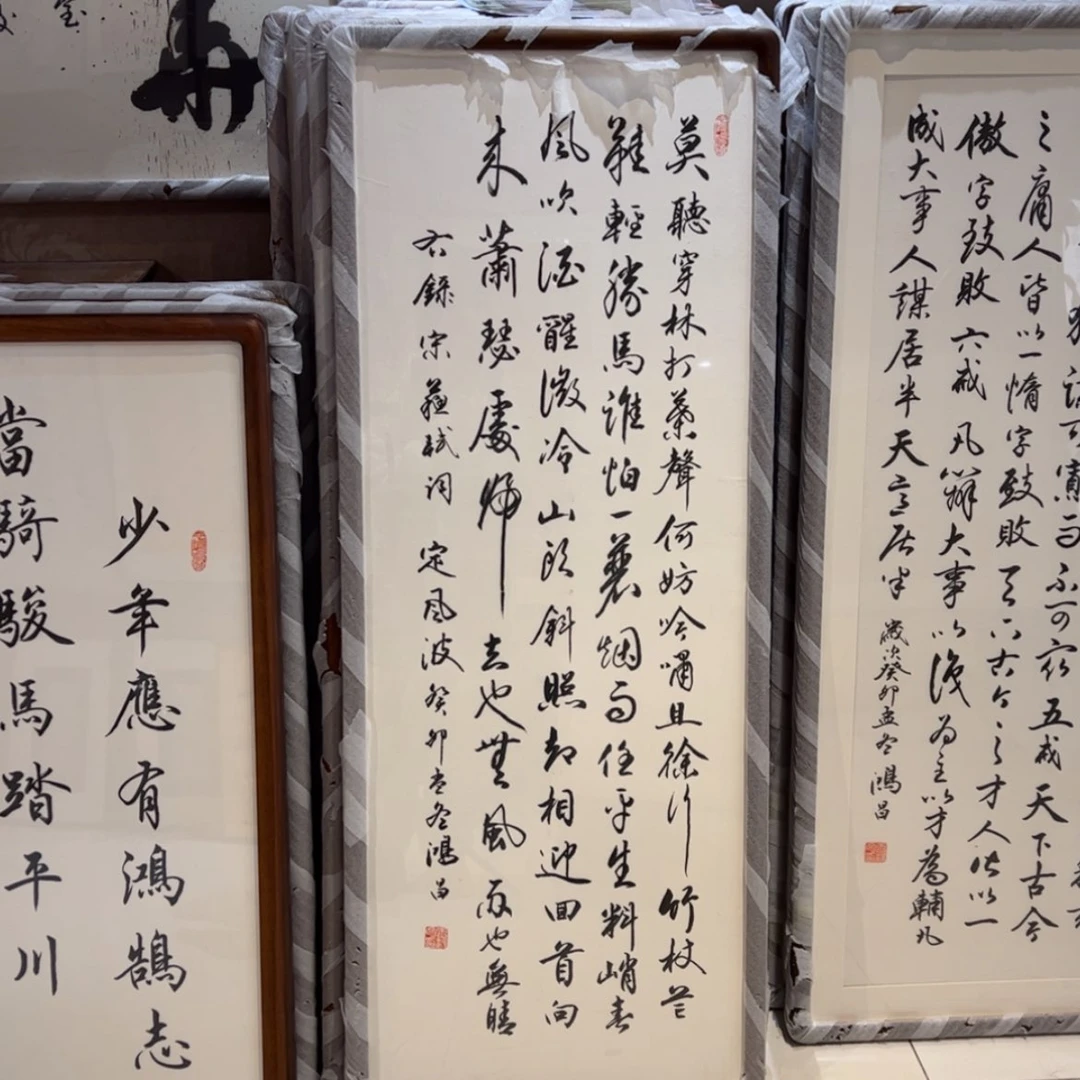 謀可寡而不可眾五戒天下古今
之庸人皆以一惰字致敗天下古今之才人皆以一
傲字致敗六戒凡辦大事以識為主以才為輔凡
成大事人謀居半天意居半
歲次癸卯孟冬鴻昌
莫聽穿林打葉聲何妨吟嘯且徐行竹杖芒
鞋輕勝馬誰怕一蓑烟雨任平生料峭春
風吹酒醒微冷山頭斜照却相迎回首向
来蕭瑟處歸去也無風雨也無晴
右錄宋蘇軾詞 定風波 癸卯孟冬鴻昌
少年應有鴻鵠志
當騎駿馬踏平川